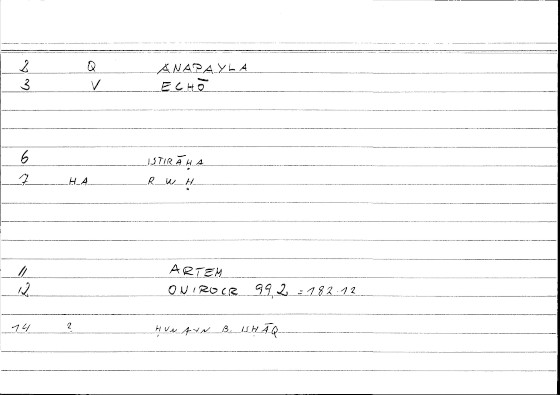 2 Q ANAPAYLA
3 V ECHŌ
6 ISTIRĀḤA
7 HA R W Ḥ
11 ARTEM
12 ONIROCR 99,2 = 182.12
14 2 B. ISḤĀQ